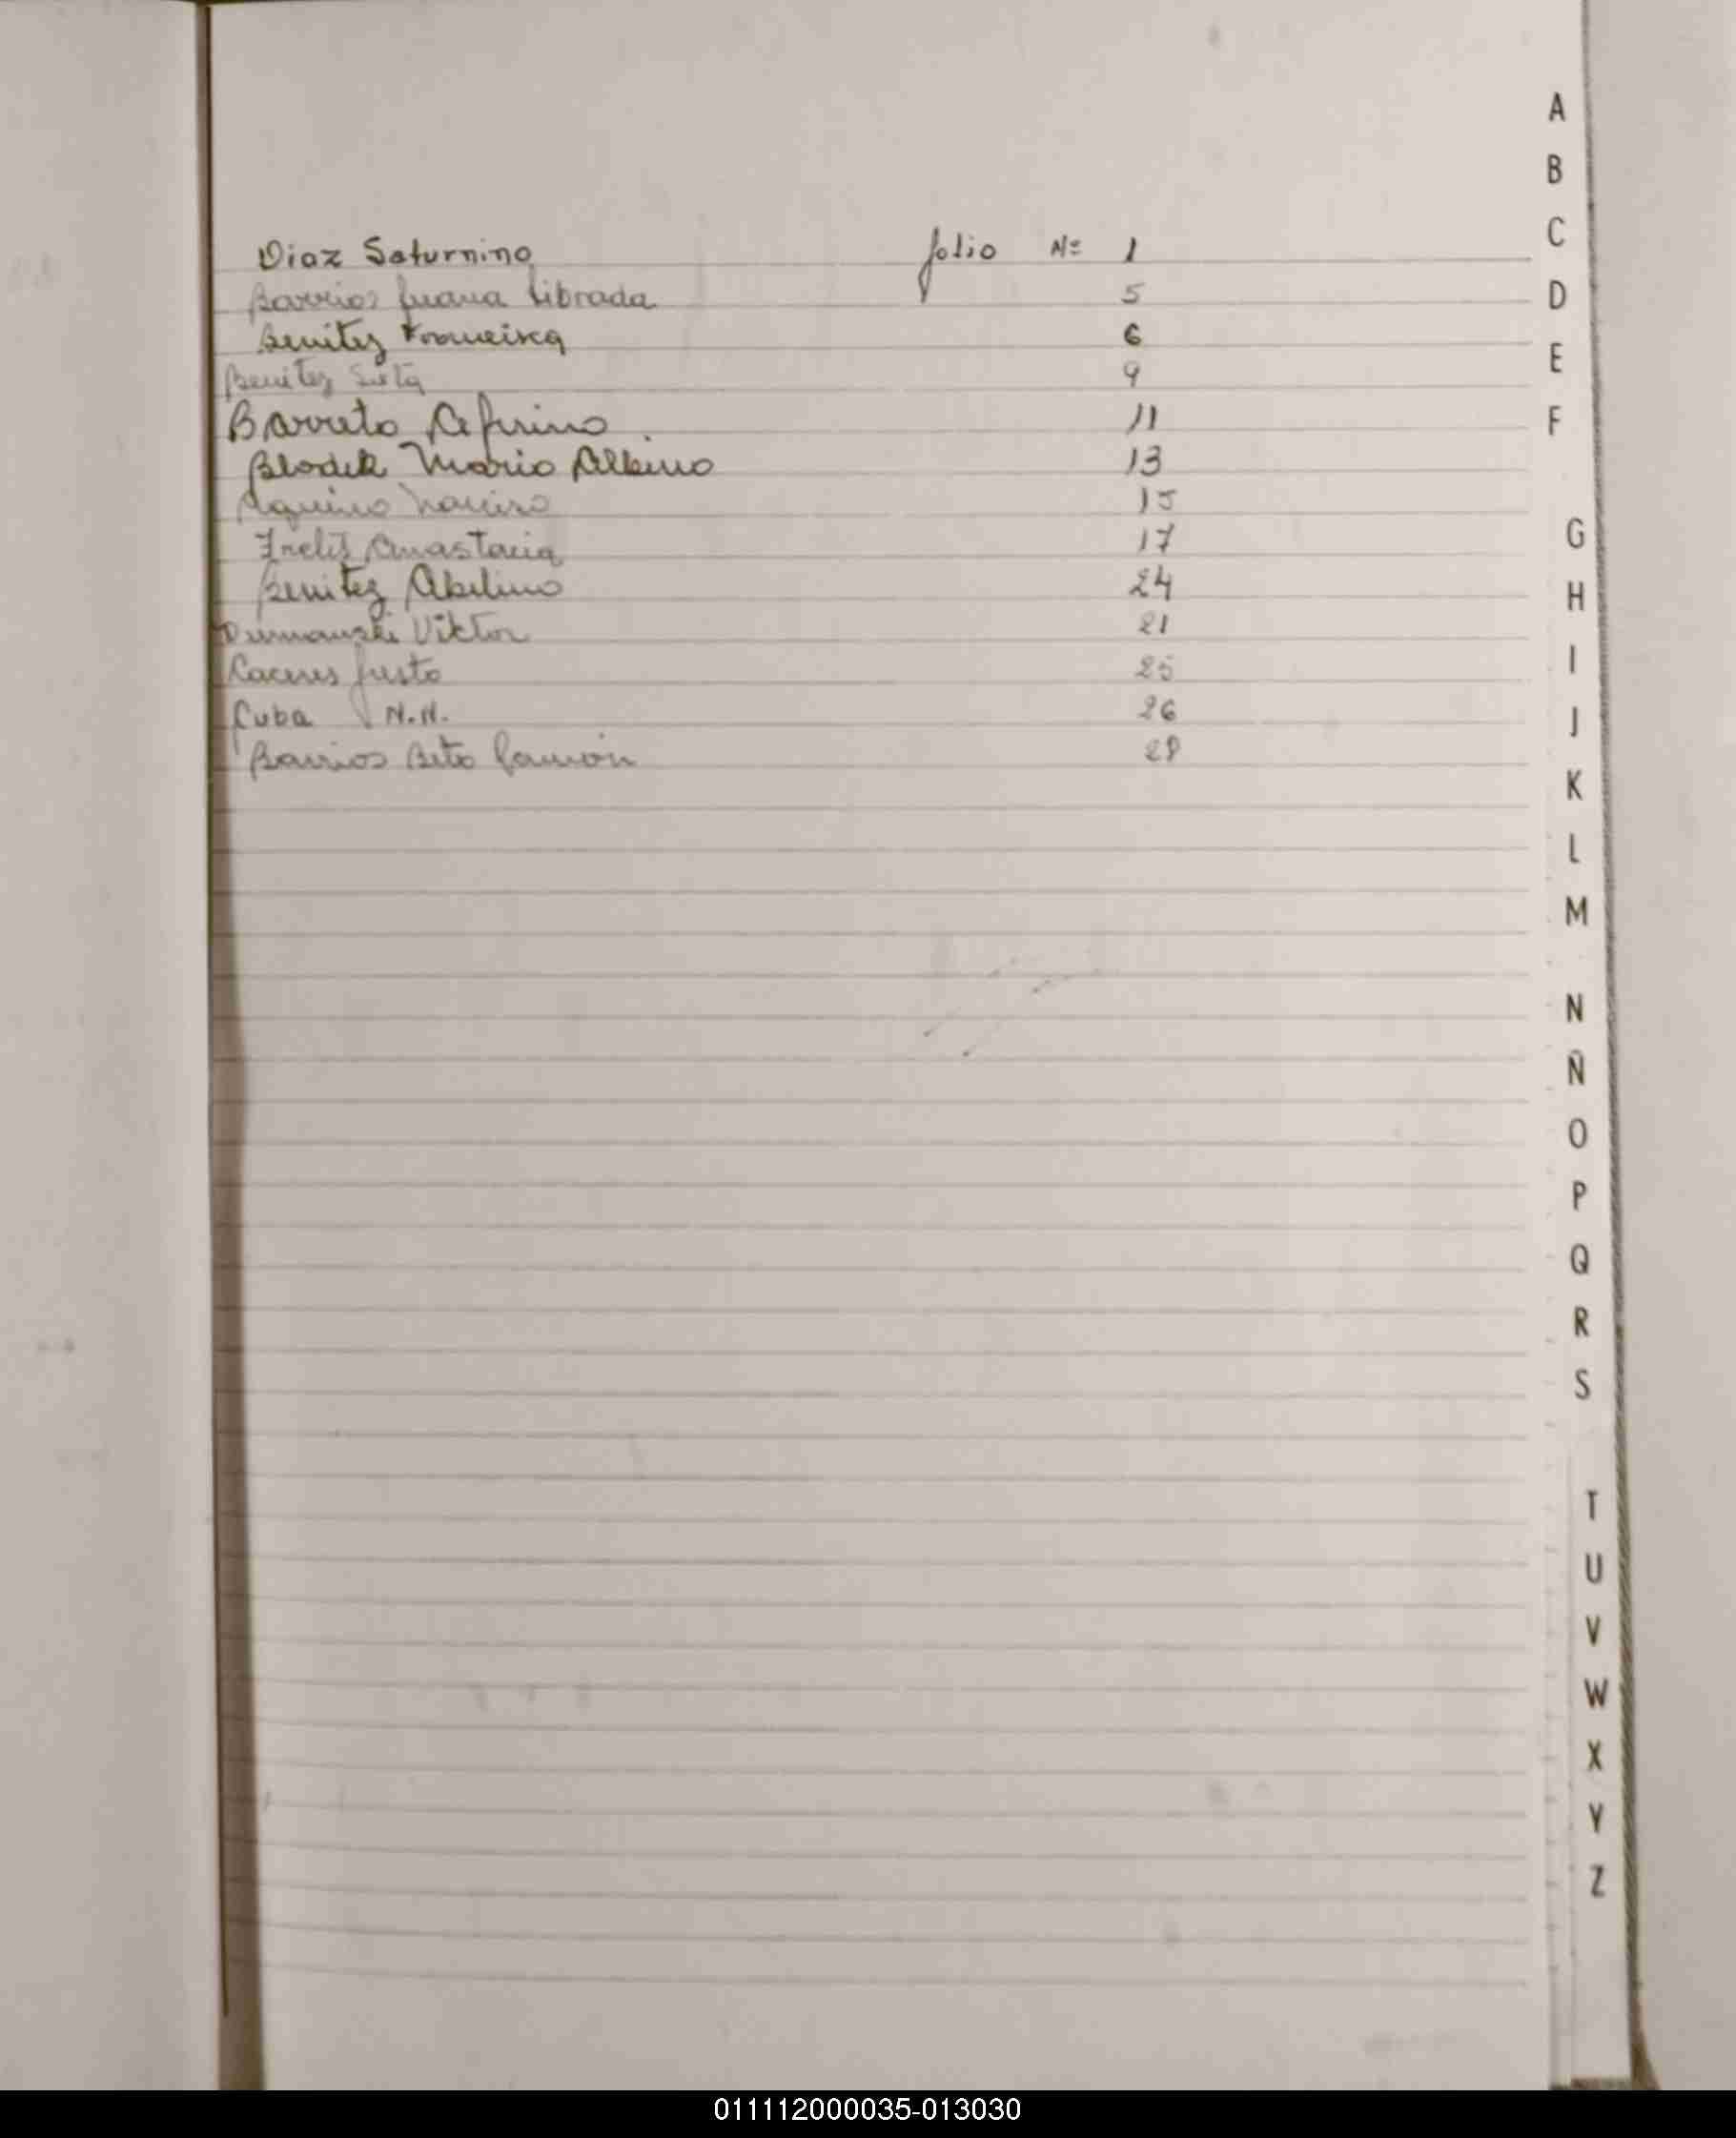 A
B
C
Diaz Saturnino folio Nº 1
D
Barrios Juana Librada 5
Benitez 6
E
Benitez Sixta 9
Barreto Ceferino 11
F
Blodek Mario Albino 13
Aquino Narciso 15
G
Irelis Anastacia 17
Benitez Abelino 24
H
Dumanski Viktor 21
Caceres Justo 25
I
Cuba N.N. 26
J
Barrios Beto Ramón 28
K
L
M
N
Ñ
O
P
Q
R
S
T
U
V
W
X
Y
Z
011112000035-013030